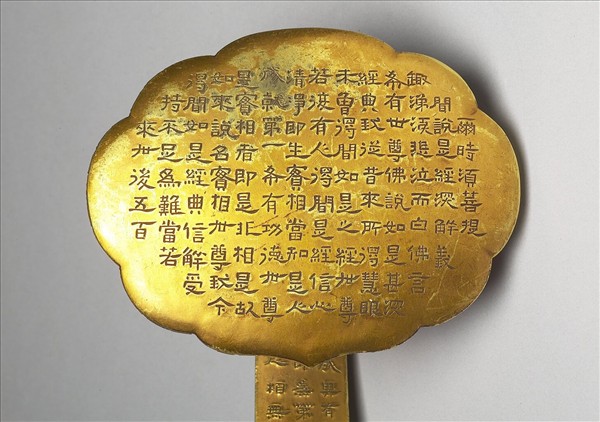 爾時須菩提
聞說是經深解義
趣涕淚悲泣而白佛言
希有世尊佛說如是甚深
經典我從昔來所得慧眼
未曾得聞如是之經世尊
若彼有人得聞是經信心
清淨即生實相當知是人
成就第一希有功德世尊
是實相者即是非相是故
如來說名實相世尊我今
得聞如是經典信解受
持不足為難當若
來世後五百
有
無第
相無